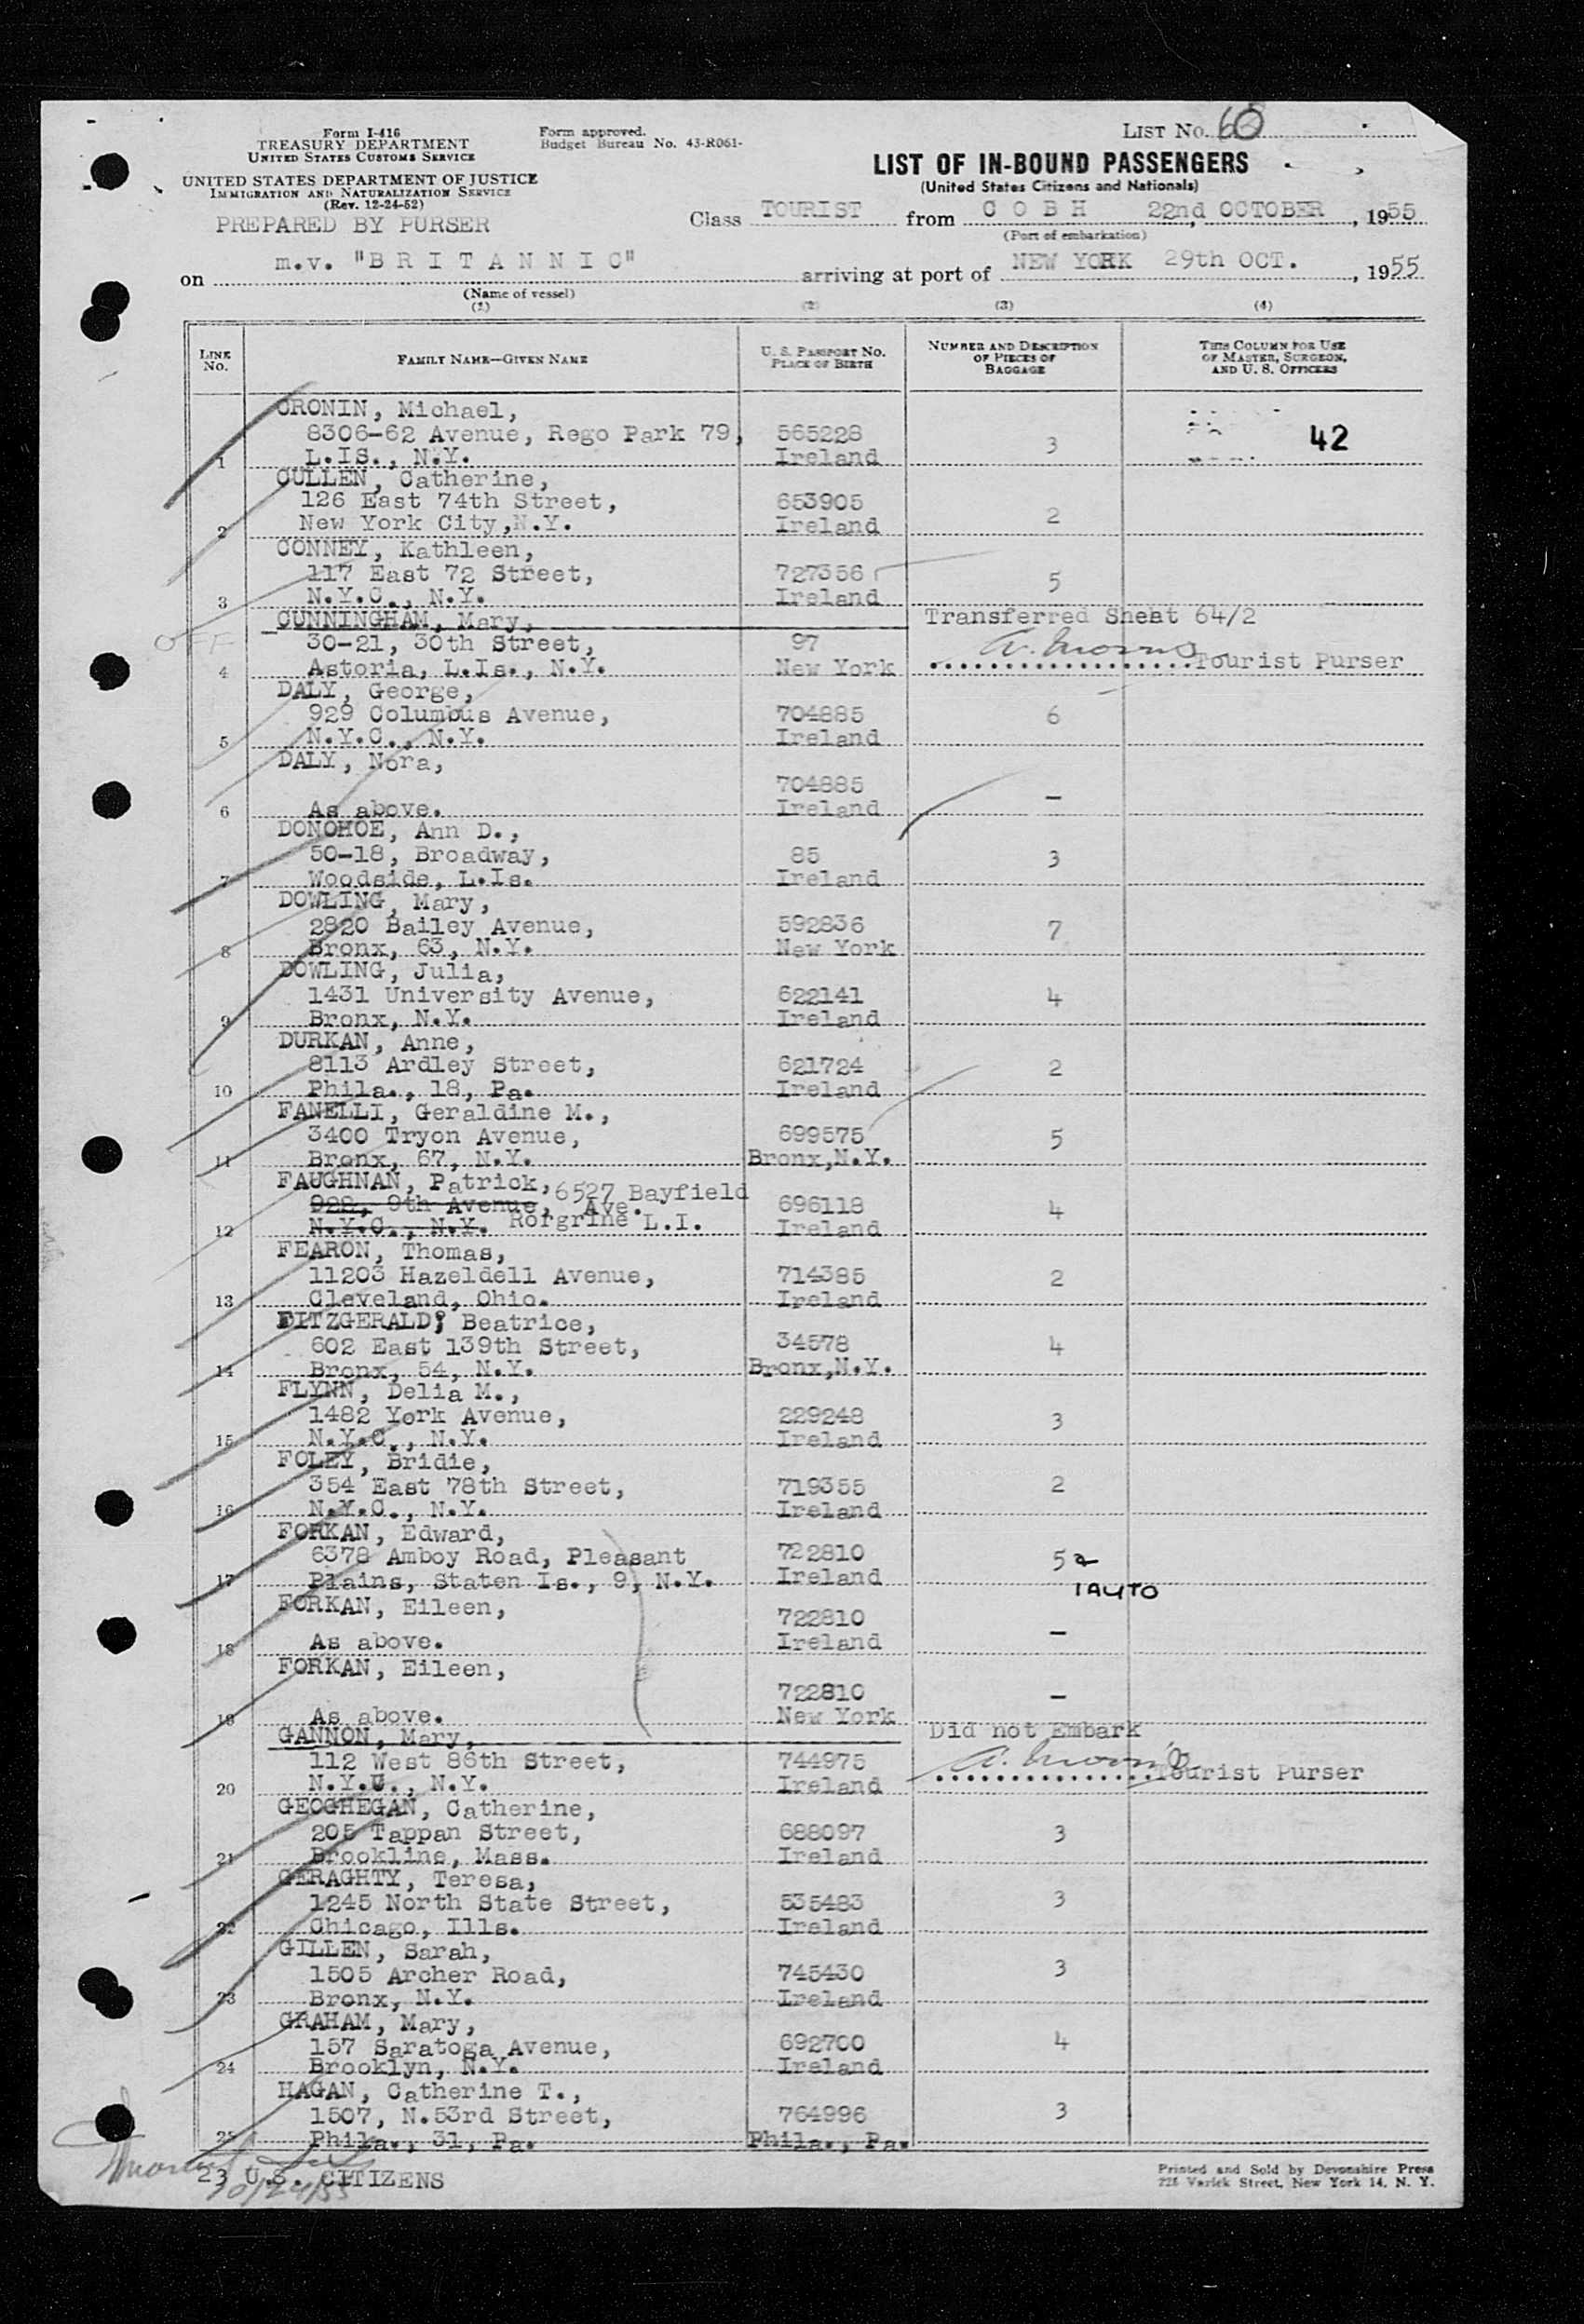 LIST No. 60
Form I-416
TREASURY DEPARTMENT
UNITED STATES CUSTOMS SERVICE
Form approved.
Budget Bureau No. 43-R061-
UNITED STATES DEPARTMENT OF JUSTICE
IMMIGRATION AND NATURALIZATION SERVICE
(Rev. 12-24-52)
PREPARED BY PURSER
LIST OF IN-BOUND PASSENGERS
(United States Citizens and Nationals)
Class TOURIST from COBH 22nd OCTOBER, 1955
(Port of embarkation)
on m.v. "BRITANNIC" arriving at port of NEW YORK 29th OCT., 1955
(Name of vessel)
(1) (2) (3) (4)
LINE No. FAMILY NAME—GIVEN NAME U. S. PASSPORT No. PLACE OF BIRTH NUMBER AND DESCRIPTION OF PIECES OF BAGGAGE THIS COLUMN FOR USE OF MASTER, SURGEON, AND U. S. OFFICERS
CRONIN, Michael,
8306-62 Avenue, Rego Park 79, 565228 3 42
1 L.IS., N.Y. Ireland
CULLEN, Catherine,
126 East 74th Street, 653905 2
2 New York City,N.Y. Ireland
CONNEY, Kathleen,
117 East 72 Street, 727356 5
3 N.Y.C., N.Y. Ireland
CUNNINGHAM, Mary, Transferred Sheet 64/2
OFF 30-21, 30th Street, 97 A. Morris
4 Astoria, L.Is., N.Y. New York Tourist Purser
DALY, George,
929 Columbus Avenue, 704885 6
5 N.Y.C., N.Y. Ireland
DALY, Nora,
704885 —
6 As above. Ireland
DONOHOE, Ann D.,
50-18, Broadway, 85 3
7 Woodside, L.Is. Ireland
DOWLING, Mary,
2820 Bailey Avenue, 592836 7
8 Bronx, 63, N.Y. New York
DOWLING, Julia,
1431 University Avenue, 622141 4
9 Bronx, N.Y. Ireland
DURKAN, Anne,
8113 Ardley Street, 621724 2
10 Phila., 18, Pa. Ireland
FANELLI, Geraldine M.,
3400 Tryon Avenue, 699575 5
11 Bronx, 67, N.Y. Bronx,N.Y.
FAUGHNAN, Patrick, 6527 Bayfield
922, 9th Avenue, Ave. 696118 4
12 N.Y.C., N.Y. Rorgrine L.I. Ireland
FEARON, Thomas,
11203 Hazeldell Avenue, 714385 2
13 Cleveland, Ohio. Ireland
FITZGERALD, Beatrice,
602 East 139th Street, 34578 4
14 Bronx, 54, N.Y. Bronx,N.Y.
FLYNN, Delia M.,
1482 York Avenue, 229248 3
15 N.Y.C., N.Y. Ireland
FOLEY, Bridie,
354 East 78th Street, 719355 2
16 N.Y.C., N.Y. Ireland
FORKAN, Edward,
6378 Amboy Road, Pleasant 722810 5
17 Plains, Staten Is., 9, N.Y. Ireland 1 AUTO
FORKAN, Eileen,
722810
18 As above. Ireland —
FORKAN, Eileen,
722810 —
19 As above. New York
GANNON, Mary, Did not Embark
112 West 86th Street, 744975 A. Morris
20 N.Y.C., N.Y. Ireland Tourist Purser
GEOGHEGAN, Catherine,
205 Tappan Street, 688097 3
21 Brookline, Mass. Ireland
GERAGHTY, Teresa,
1245 North State Street, 535483 3
22 Chicago, Ills. Ireland
GILLEN, Sarah,
1505 Archer Road, 745430 3
23 Bronx, N.Y. Ireland
GRAHAM, Mary,
157 Saratoga Avenue, 692700 4
24 Brooklyn, N.Y. Ireland
HAGAN, Catherine T.,
1507, N.53rd Street, 764996 3
25 Phila., 31, Pa. Phila., Pa.
23 U.S. CITIZENS
Printed and Sold by Devonshire Press
225 Varick Street, New York 14, N. Y.